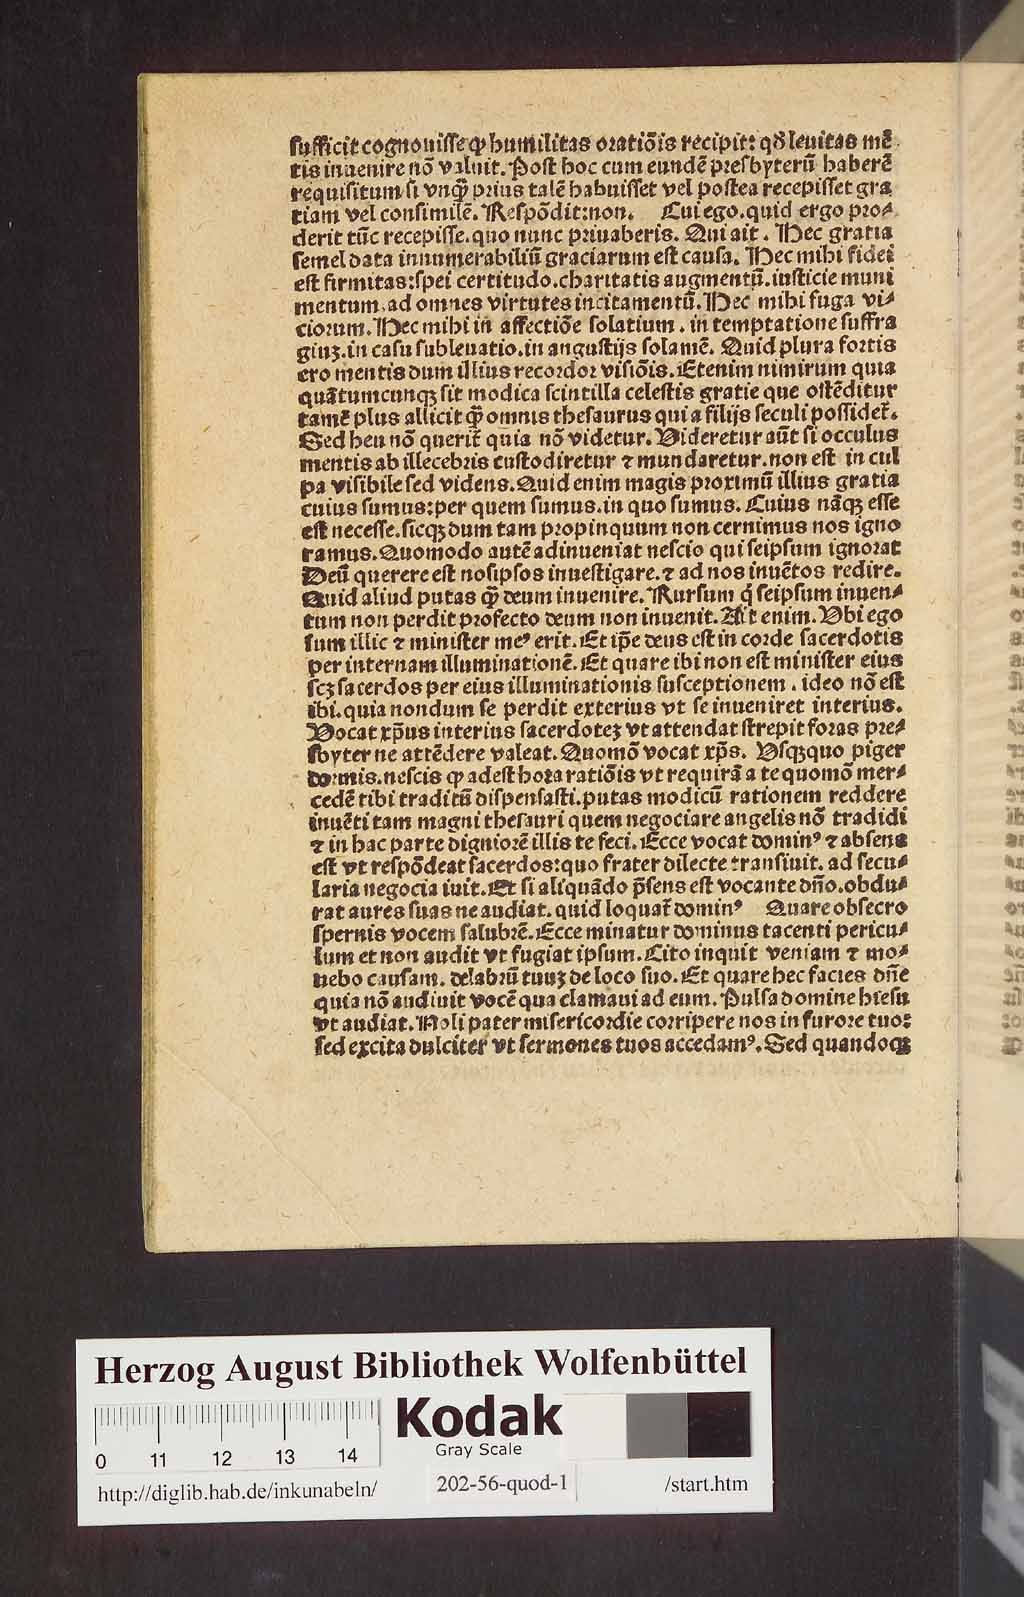 sufficit cognouisse ꝙ humilitas oratiōis recipit: qđ leuitas mē
tis inuenire nō valuit. Post hoc cum eundē presbyterū haberē
requisitum si vnq̄ȝ prius talē habuisset vel postea recepisset gra
tiam vel consimilē. Respōdit: non. Cui ego. quid ergo pro⸗
derit tūc recepisse. quo nunc priuaberis. Qui ait. Hec gratia
semel data innumerabiliū graciarum est causa. Hec mihi fidei
est firmitas: spei certitudo. charitatis augmentū. iusticie muni
mentum. ad omnes virtutes incitamentū. Hec mihi fuga vi⸗
ciorum. Hec mihi in affectiōe solatium. in temptatione suffra
giuȝ. in casu subleuatio. in angustijs solamē. Quid plura fortis
ero mentis dum illius recordor visiōis. Etenim nimirum quia
quātumcunqȝ sit modica scintilla celestis gratie que ostēditur
tamē plus allicit q̄ȝ omnis thesaurus qui a filijs seculi possidet̄.
Sed heu nō querit̄ quia nō videtur. Videretur aūt si occulus
mentis ab illecebris custodiretur ⁊ mundaretur. non est in cul
pa visibile sed videns. Quid enim magis proximū illius gratia
cuius sumus: per quem sumus. in quo sumus. Cuius nāqȝ esse
est necesse. sicqȝ dum tam propinquum non cernimus nos igno
ramus. Quomodo autē adinueniat nescio qui seipsum ignorat
Deū querere est nosipsos inuestigare. ⁊ ad nos inuētos redire.
Quid aliud putas q̄ȝ deum inuenire. Rursum q̇ seipsum inuen⸗
tum non perdit profecto deum non inuenit. Ait enim. Vbi ego
sum illic ⁊ minister me⁹ erit. Et ip̄e deus est in corde sacerdotis
per internam illuminationē. Et quare ibi non est minister eius
scȝ sacerdos per eius illuminationis susceptionem. ideo nō est
ibi. quia nondum se perdit exterius vt se inueniret interius.
Vocat xp̄us interius sacerdoteȝ vt attendat strepit foras pre⸗
sbyter ne attēdere valeat. Quomō vocat xp̄s. Vsqȝquo piger
dormis. nescis ꝙ adest hora ratiōis vt requirā a te quomō mer⸗
cedē tibi traditū dispensasti. putas modicū rationem reddere
inuēti tam magni thesauri quem negociare angelis nō tradidi
⁊ in hac parte digniorē illis te feci. Ecce vocat domin⁹ ⁊ absens
est vt respōdeat sacerdos: quo frater dilecte transiuit. ad secu⸗
laria negocia iuit. Et si aliquādo p̄sens est vocante dn̄o. obdu⸗
rat aures suas ne audiat. quid loquat̄ domin⁹ Quare obsecro
spernis vocem salubrē. Ecce minatur dominus tacenti pericu⸗
lum et non audit vt fugiat ipsum. Cito inquit veniam ⁊ mo⸗
uebo causam. delabrū tuuȝ de loco suo. Et quare hec facies dn̄e
quia nō audiuit vocē qua clamaui ad eum. Pulsa domine hiesu
vt audiat. Noli pater misericordie corripere nos in furore tuo:
sed excita dulciter vt sermones tuos accedam⁹. Sed quandoqȝ
Herzog August Bibliothek Wolfenbüttel
Kodak
Gray Scale
0 11 12 13 14
http://diglib.hab.de/inkunabeln/ 202-56-quod-1 /start.htm